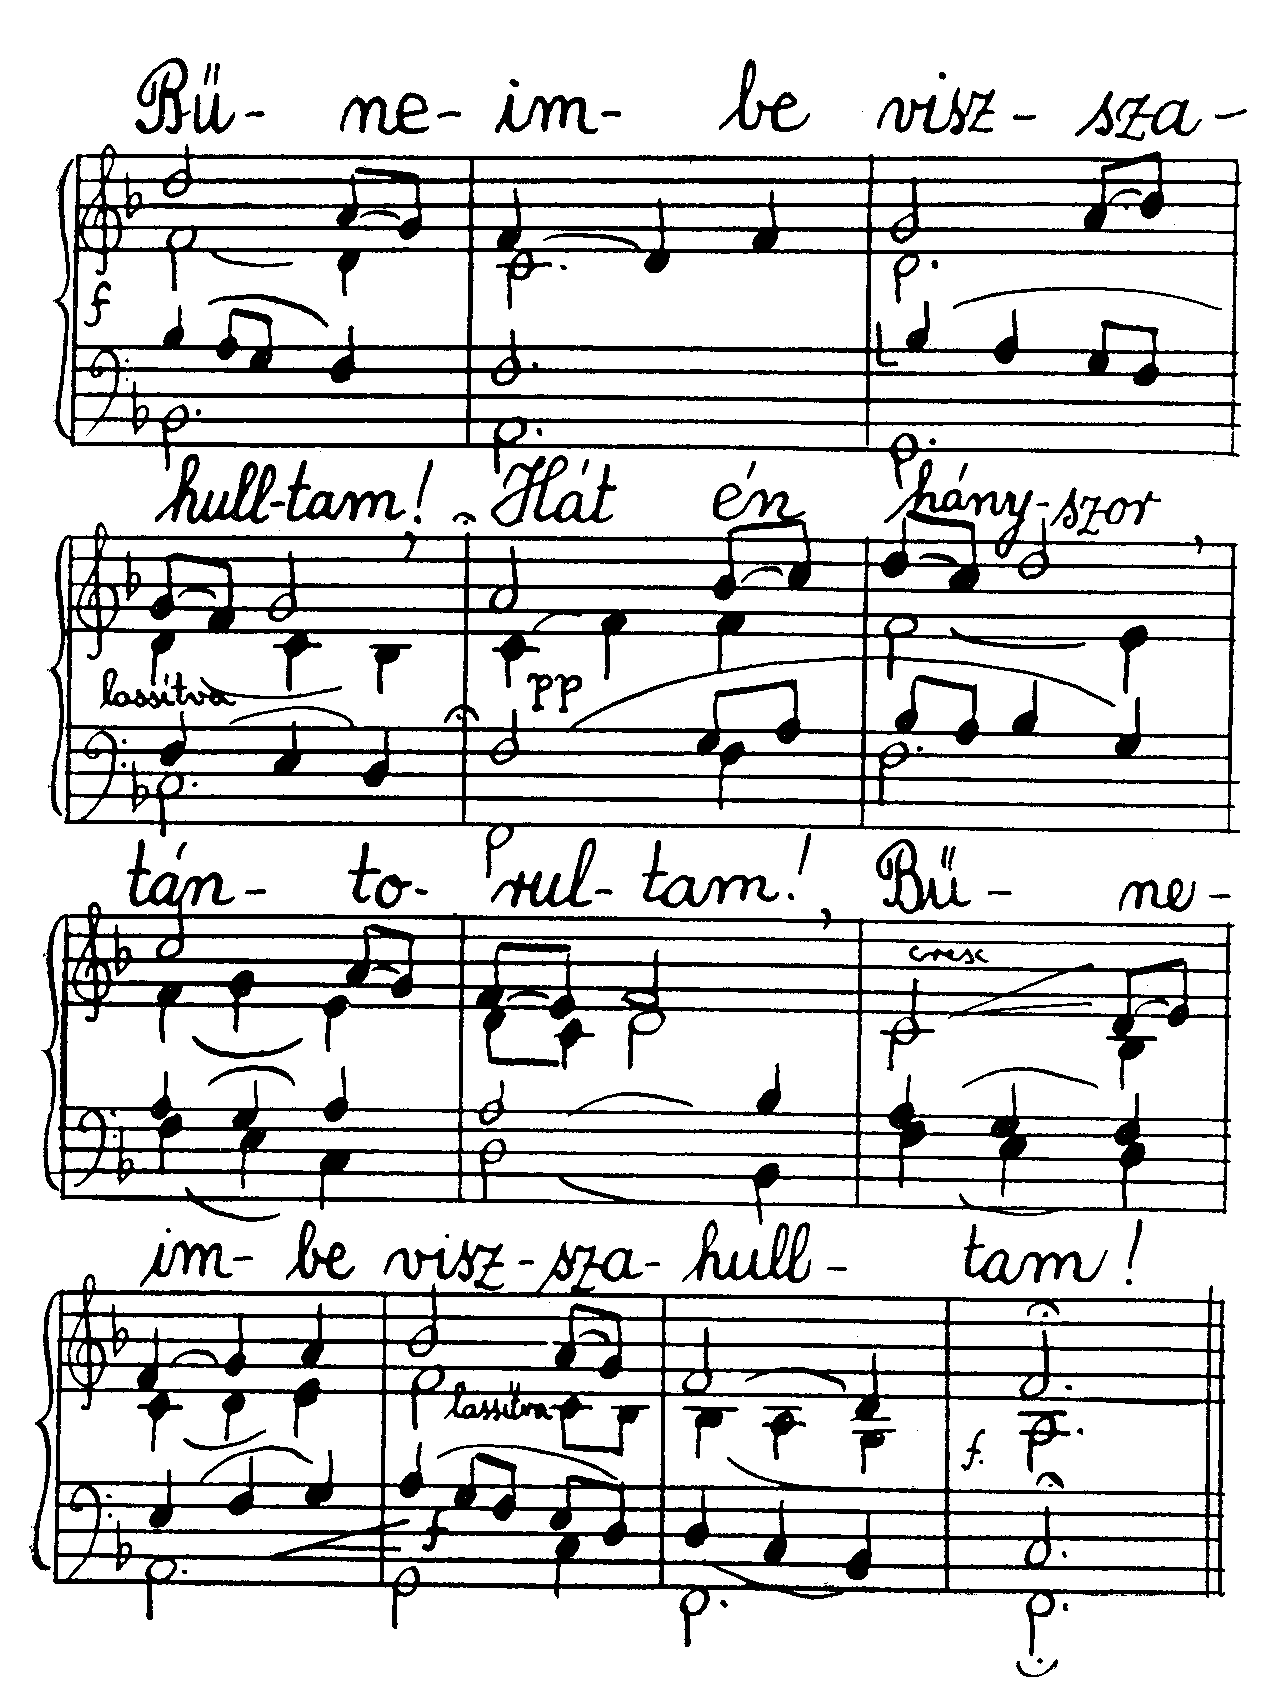 Bű- ne- im- be visz- sza-
f
hull-tam! Hát én hány-szor
lassítva pp
tán- to- rul- tam! Bű- ne-
cresc
im- be visz- sza- hull- tam!
lassítva
f.
f